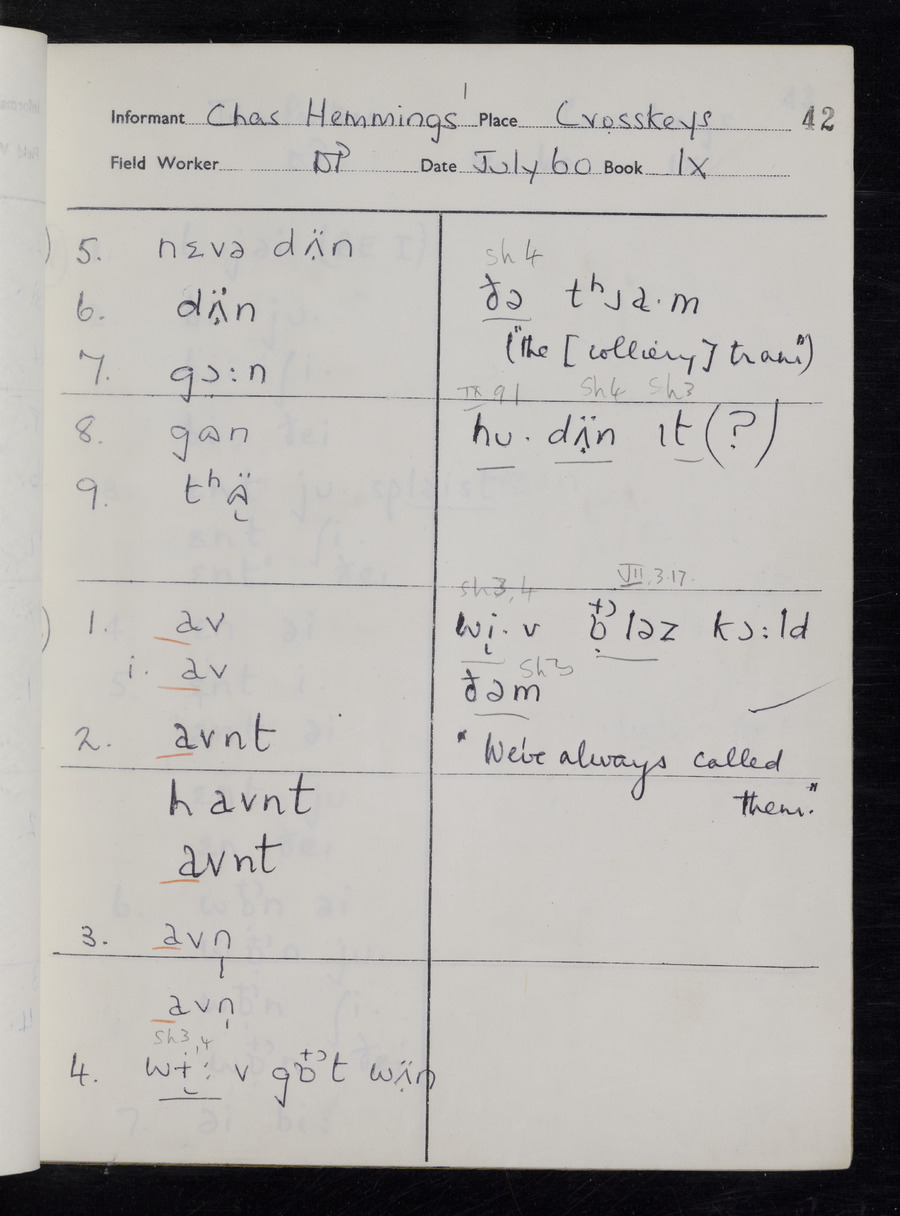 Informant Chas Hemmings Place Crosskeys 42
Field Worker DP Date July 60 Book IX
5. nɛvə dʌ̈n
6. dʌ̈n
7. gɔ:n
8. gɒn
9. tʰʌ̈
1. av
i. av
2. avnt
havnt
avnt
3. avn̩
avn̩
sh3,4
4. wɨ: v gɒt wʌ̈n
sh 4
ðə tʰɹa·m
("the [colliery] tram")
IX 91 Sh4 Sh3
hu· dʌ̈n ɪt (?)
sh3,4 VII.3.17.
wi· v ɒləz kɔ:ld
Sh3
ðəm
"We've always called
them."